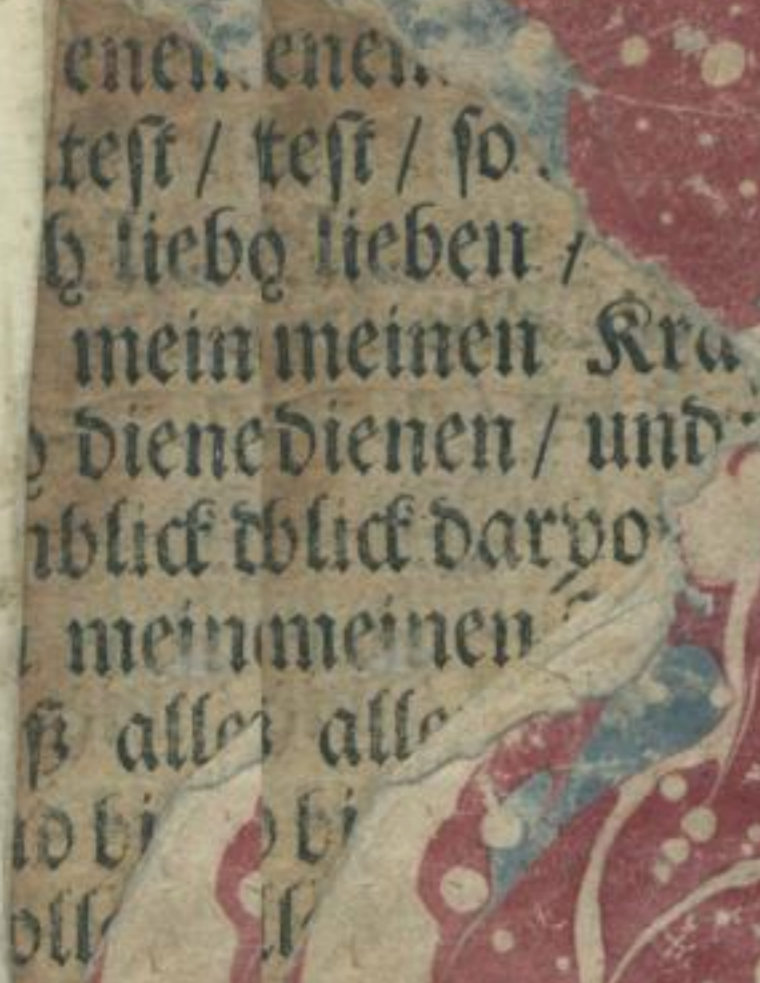 enen enen
test / test / so
h lieb lieben /
mein meinen Kra
diene dienen / und
nblick blick darvo
mein meinen
ß alle alle
nd bi bi
oll ll